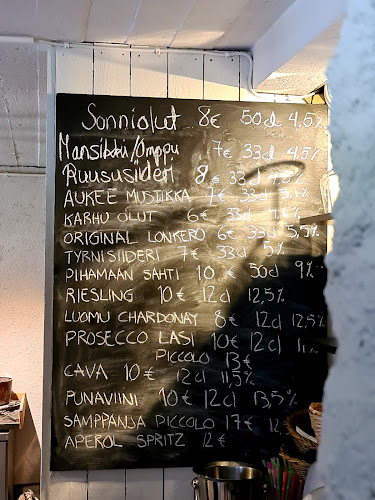 Sonniolut 8€ 50cl 4,5%
Mansikka/Omppu 7€ 33cl 4,5%
Ruususiideri 8€ 33cl 4,5%
AUKEE MUSTIKKA 7€ 33cl
KARHU OLUT 6€ 33cl
ORIGINAL LONKERO 6€ 33cl 5,5%
TYRNISIIDERI 7€ 33cl 5%
PIHAMAAN SAHTI 10€ 50cl 9%
RIESLING 10€ 12cl 12,5%
LUOMU CHARDONAY 8€ 12cl 12,5%
PROSECCO LASI 10€ 12cl
PICCOLO 13€
CAVA 10€ 12cl 11,5%
PUNAVIINI 10€ 12cl 13,5%
SAMPPANJA PICCOLO 17€
APEROL SPRITZ 12€